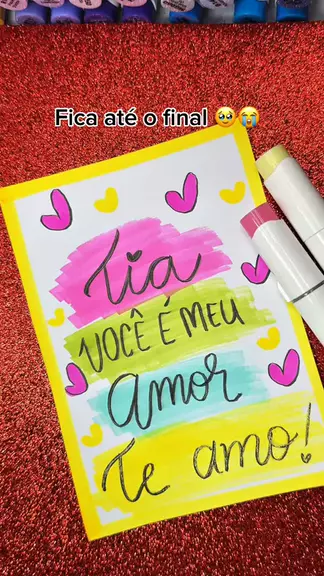 Fica até o final 🥹😭
Tia
VOCÊ É MEU
Amor
Te amo!